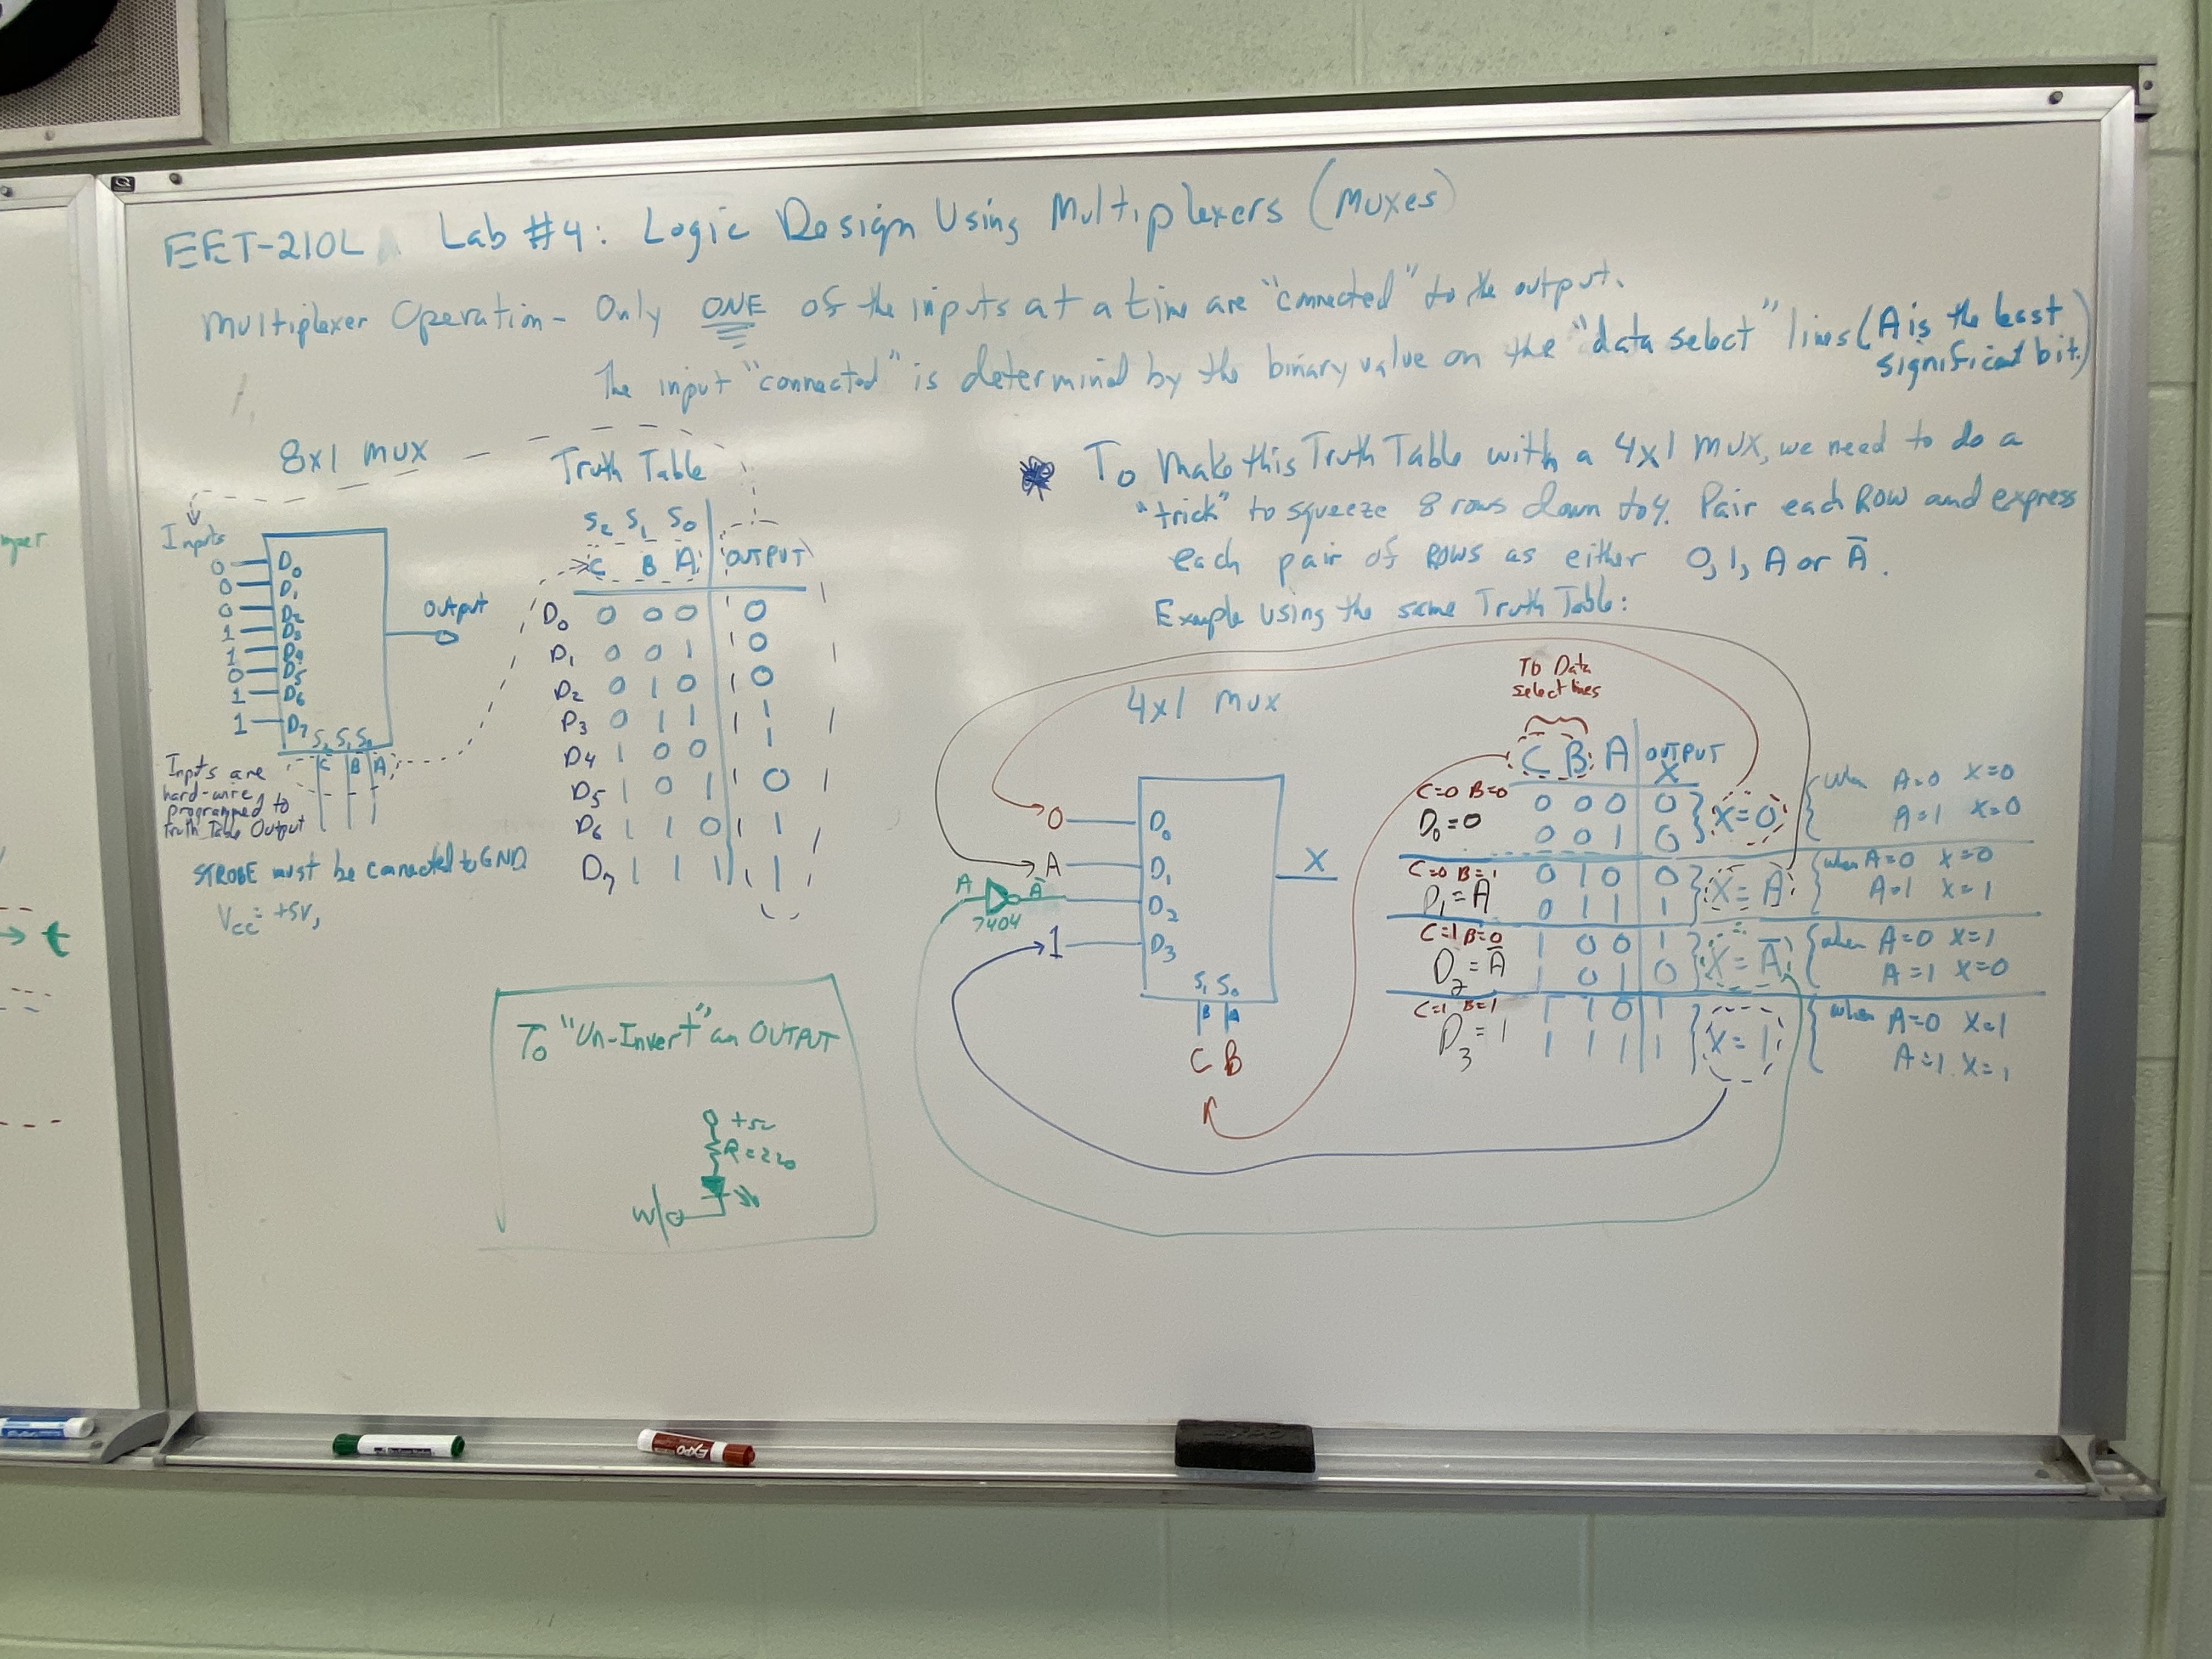 EET-210L Lab #4: Logic Design Using Multiplexers (Muxes)
Multiplexer Operation - Only ONE of the inputs at a time are "connected" to the output.
The input "connected" is determined by the binary value on the "data select" lines (A is the least
significant bit.)
8x1 MUX
Truth Table
Inputs
S2 S1 S0
C B A OUTPUT
0 D0
0 D1
0 D2
1 D3
1 D4
0 D5
1 D6
1 D7
S2 S1 S0
C B A
Output
D0 0 0 0 0
D1 0 0 1 0
D2 0 1 0 0
D3 0 1 1 1
D4 1 0 0 1
D5 1 0 1 0
D6 1 1 0 1
D7 1 1 1 1
Inputs are
hard-wire
programmed to
Truth Table Output
STROBE must be connected to GND
VCC = +5V,
To "Un-Invert" an OUTPUT
+5V
R=220
W
To Make this Truth Table with a 4x1 MUX, we need to do a
"trick" to squeeze 8 rows down to 4. Pair each Row and express
each pair of Rows as either 0, 1, A or Ā.
Example using the same Truth Table:
4x1 MUX
0 D0
A D1
A Ā D2
7404
1 D3
X
S1 S0
B A
C B
To Data
select lines
C B A OUTPUT
X
C=0 B=0
D0=0
0 0 0 0
0 0 1 0
X=0
When A=0 X=0
A=1 X=0
C=0 B=1
D1=A
0 1 0 0
0 1 1 1
X=A
when A=0 X=0
A=1 X=1
C=1 B=0
D2=Ā
1 0 0 1
1 0 1 0
X=Ā
when A=0 X=1
A=1 X=0
C=1 B=1
D3=1
1 1 0 1
1 1 1 1
X=1
when A=0 X=1
A=1 X=1
t
EXPO